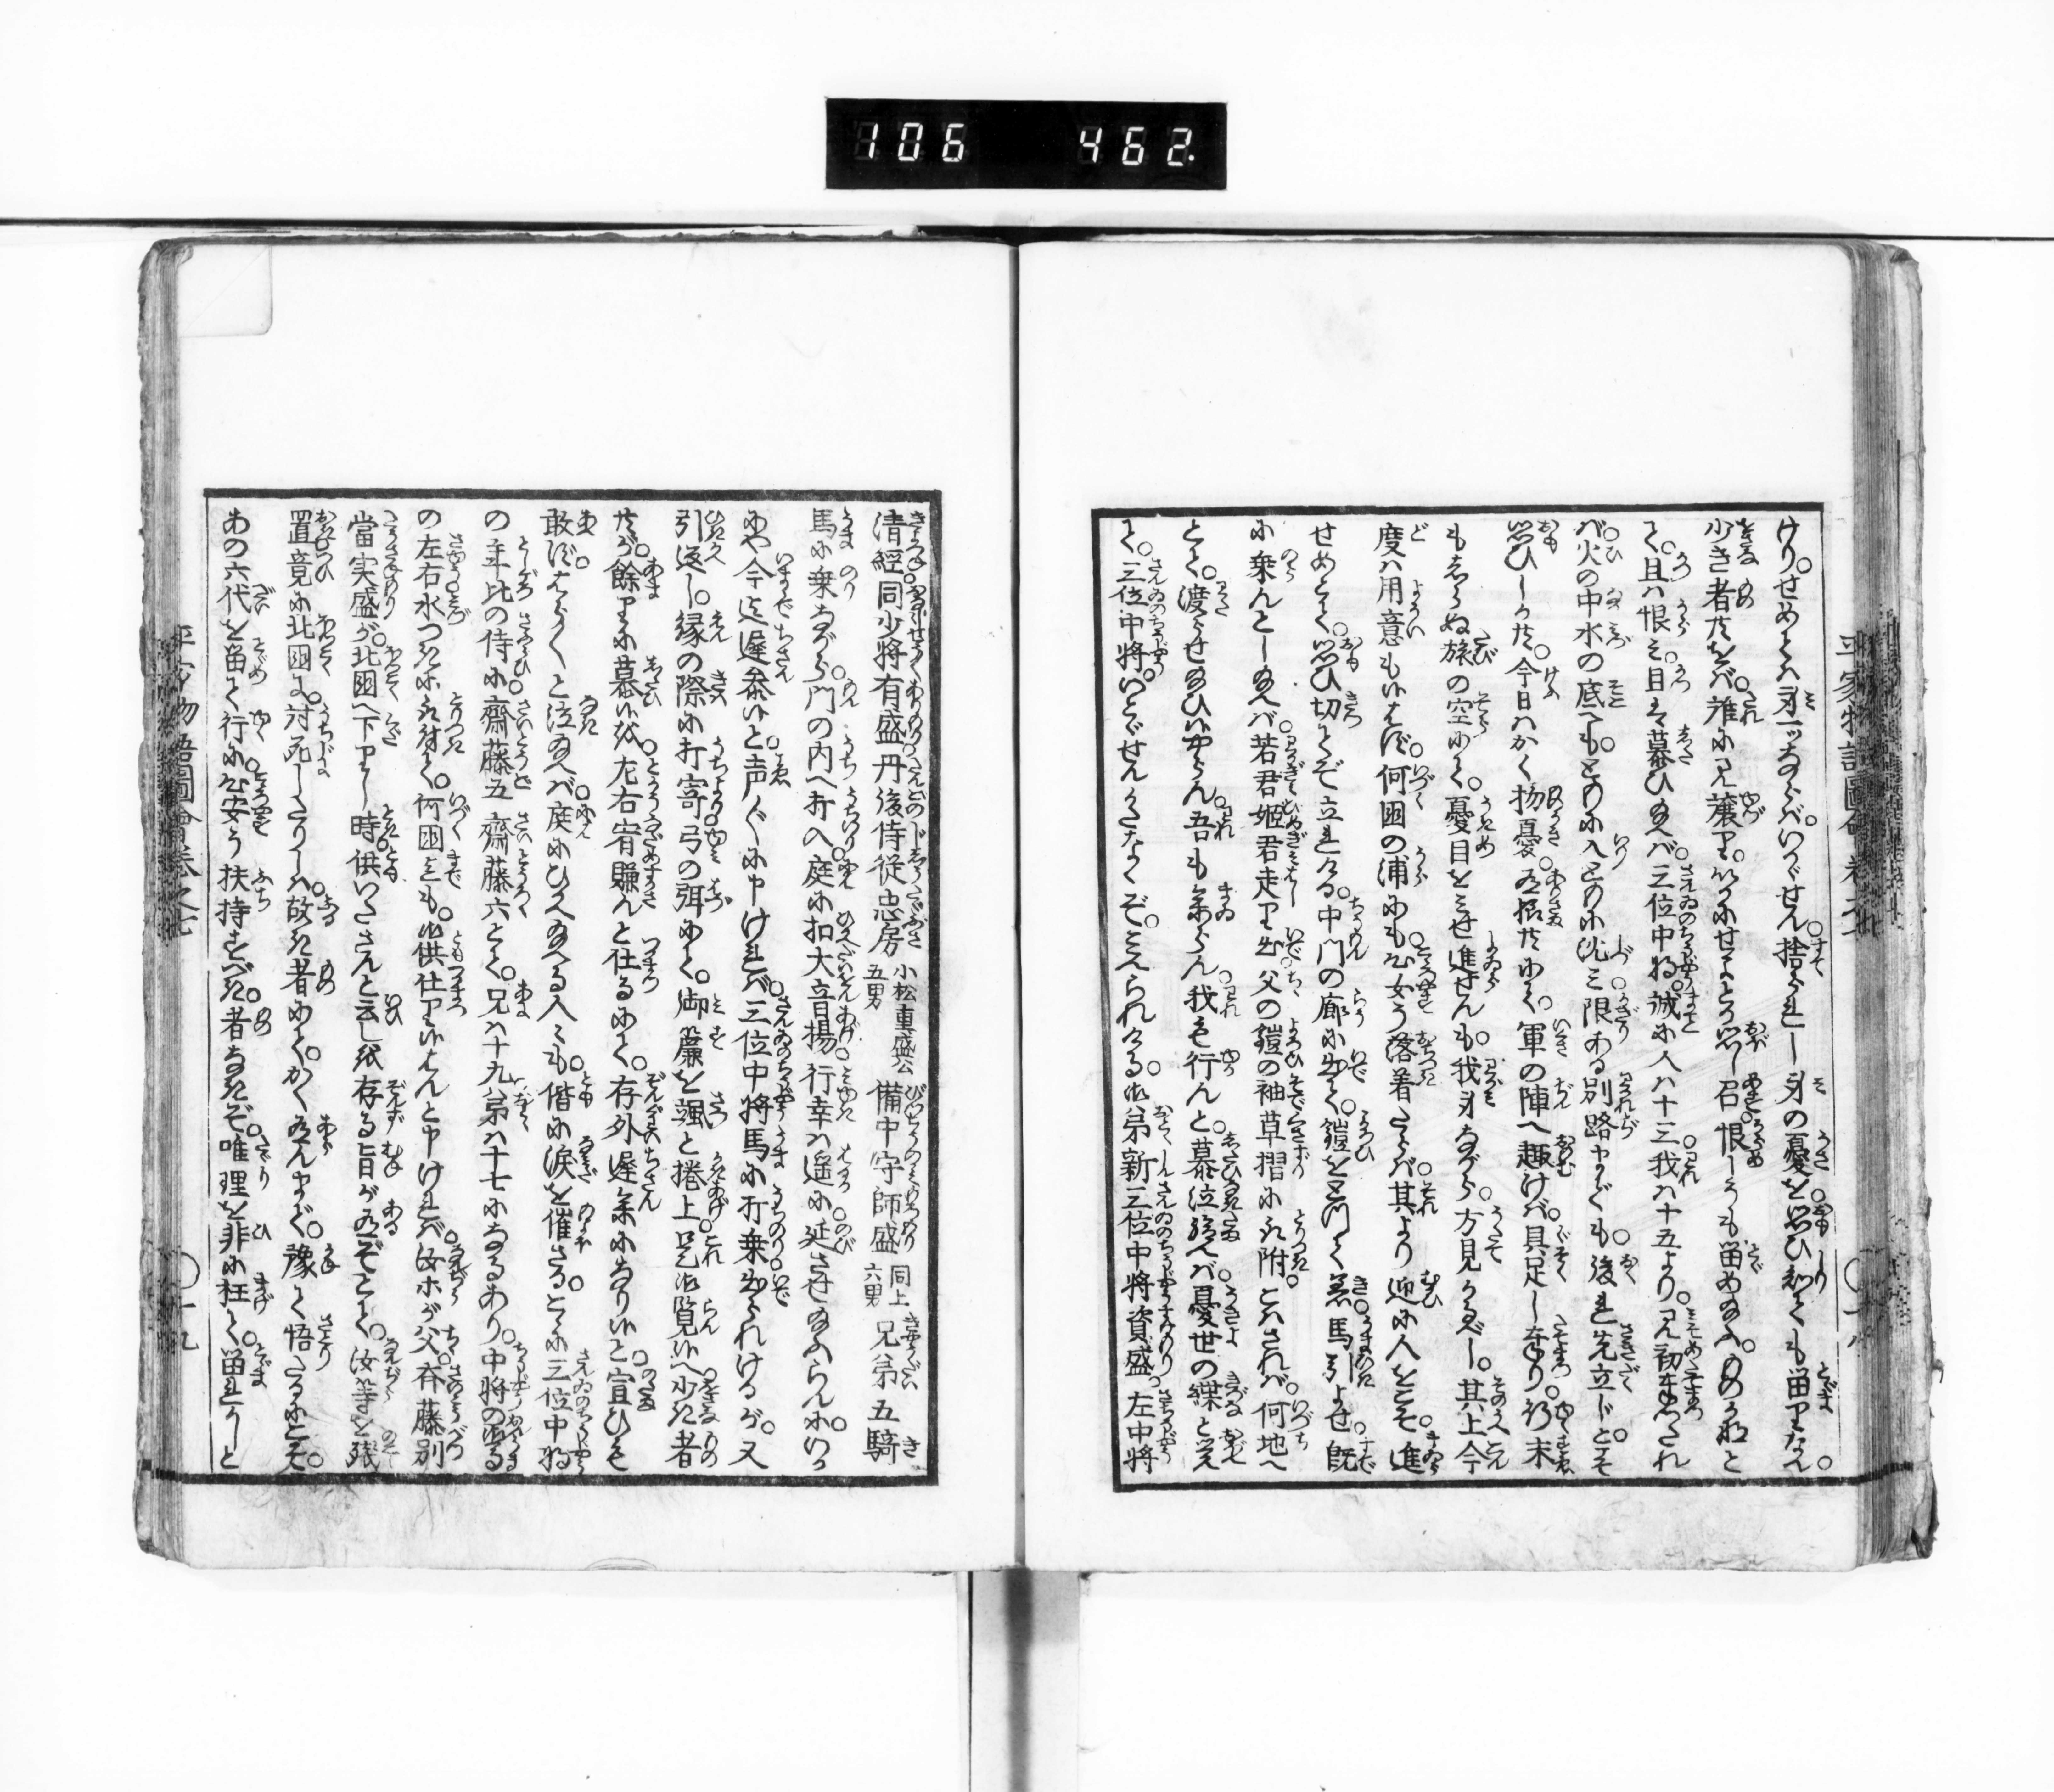 106 462
けり。せめては身一ツならばいかゞせん。捨られし身の憂を思ひ知ても留りなん。
少き者共をば。誰に見譲り。いかにせよとか思し召。恨しうも留め給ふ。ものかなと
て。且は恨み。且は慕ひ給へば。三位中将。誠に人は十三我は十五より。見初奉したれ
ば。火の中水の底へも。ともに入ともに沈み。限ある別路までも。後れ先立じ。とこそ
思ひしか共。今日はかく物憂。有様共にて。軍の陣へ趣けば。具足し奉り。行末
もしらぬ旅の空にて。憂目をみせ進せんも。我身ながら。方見かるべし。其上今
度は用意もいはず。何国の浦にも。心安う落着たらば。其より迎に人をこそ。進
せめとて。思ひ切てぞ立れける。中門の廊に出て。鎧を見附て着。馬引よせ。既
に乗んとし給へば。若君姫君走り出。父の鎧の袖草摺に取附。とはされば。何地へ
とて。渡らせ給ひ候やらん。吾も参らん。我も行んと。慕泣給へば。憂世の絆と覚
て。三位中将。いとゞせんかたなくぞ。見られける。御弟新三位中将資盛。左中将
平家物語図会巻之七 ○十八
清経同少将有盛。丹後侍従忠房 小松重盛公五男 備中守師盛 同上六男 兄弟五騎
馬に乗ながら。門の内へ打入。庭に扣大音揚。行幸は遥に延させ給ふらんに。いか
にや今迄遅参候と。声〲に申ければ。三位中将馬に打乗。出られけるが。又
引返し。縁の際に打寄弓の弭にて。御簾を颯と捲上。是御覧候へ。少き者
共が。余りに慕候を。左右宥賺んと仕るにて。存外遅参になり候と。宣ひも
敢ず。はら〱と泣給へば。庭にひかへ給へる人々も。偕に涙を催さる。こゝに三位中将
の年比の侍に。斎藤五斎藤六とて。兄は十九弟は十七になるあり。中将の御馬
の左右水つきに取付て。何国までも。御供仕り候はんと申ければ。汝等が父斎藤別
当実盛が。北国へ下りし時供いたさんと云しを。存る旨が有ぞとて。汝等を残
置竟に北国に。討死したりしは。故き者にて。かく有んまで。予て悟たるにこそ。
あの六代を留て行に心安う扶持すべき者なきぞ。唯理を非に枉て。留れかしと
平家物語図会巻之七 ○十九